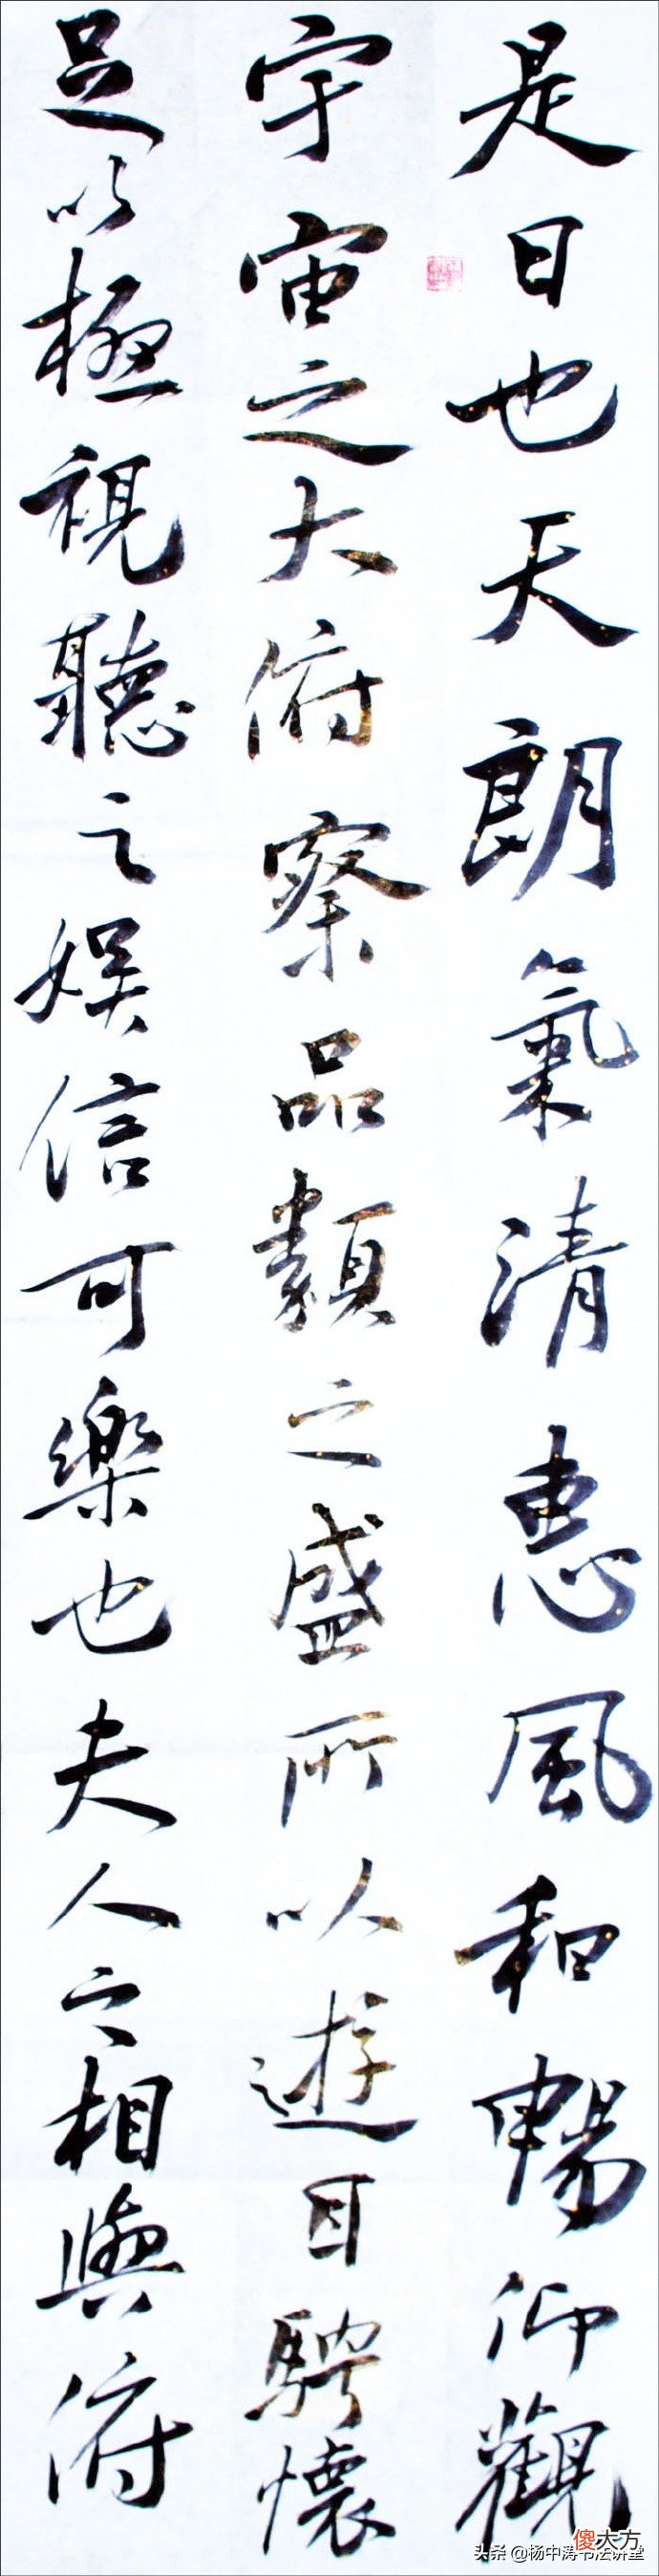 是日也天朗氣清惠風和暢仰觀
宇宙之大俯察品類之盛所以遊目騁懷
足以極視聽之娛信可樂也夫人之相與俯
傻大方
头条 @杨中涛书法讲堂